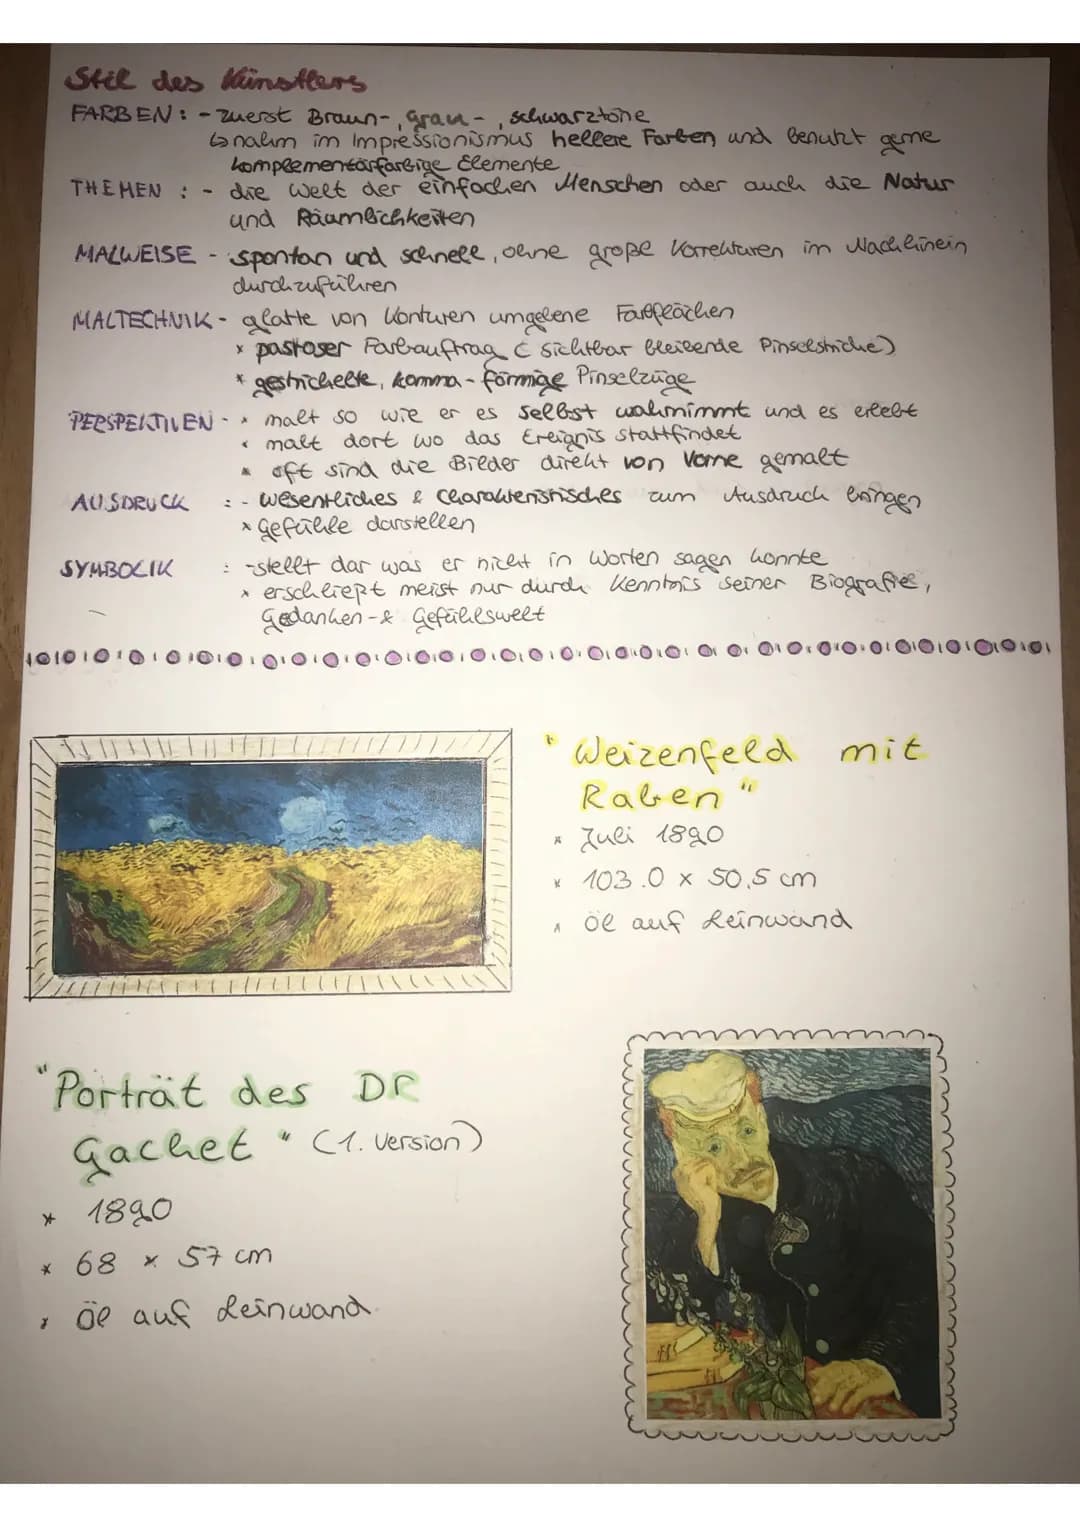 Stil des Künstlers
FARBEN: - zuerst Braun-, grau-, schwarztöne
↳ nahm im Impressionismus hellere Farben und benutzt gerne
komplementärfarbige Elemente
THEMEN : - die Welt der einfachen Menschen oder auch die Natur
und Räumlichkeiten
MALWEISE - spontan und schnell, ohne große Korrekturen im Nachhinein
durchzuführen
MALTECHNIK - glatte von Konturen umgebene Farbflächen
* pastoser Farbauftrag (sichtbar bleibende Pinselstriche)
* gestrichelte, komma-förmige Pinselzüge
PERSPEKTIVEN - * malt so wie er es selbst wahrnimmt und es erlebt
* malt dort wo das Ereignis stattfindet
* oft sind die Bilder direkt von Vorne gemalt
AUSDRUCK : - wesentliches & Charakteristisches zum Ausdruck bringen
* Gefühle darstellen
SYMBOLIK : - stellt dar was er nicht in Worten sagen konnte
* erschließt meist nur durch Kenntnis seiner Biografie,
Gedanken-& Gefühlswelt
"Weizenfeld mit
Raben"
* Juli 1890
* 103.0 x 50,5 cm
* Öl auf Leinwand
"Porträt des DR
Gachet" (1. Version)
* 1890
* 68 x 57 cm
* Öl auf Leinwand